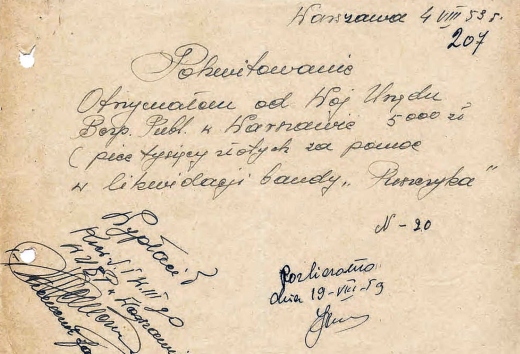 Warszawa 4 VIII 53 r.
207
Pokwitowanie
Otrzymałem od Woj Urzędu
Bezp. Publ. w Warszawie 5000 zł
(pięc tysięcy złotych za pomoc
w likwidacji bandy „Puszczyka"
N - 20
Wypłacił
Rozliczono
dnia 19-VIII-53